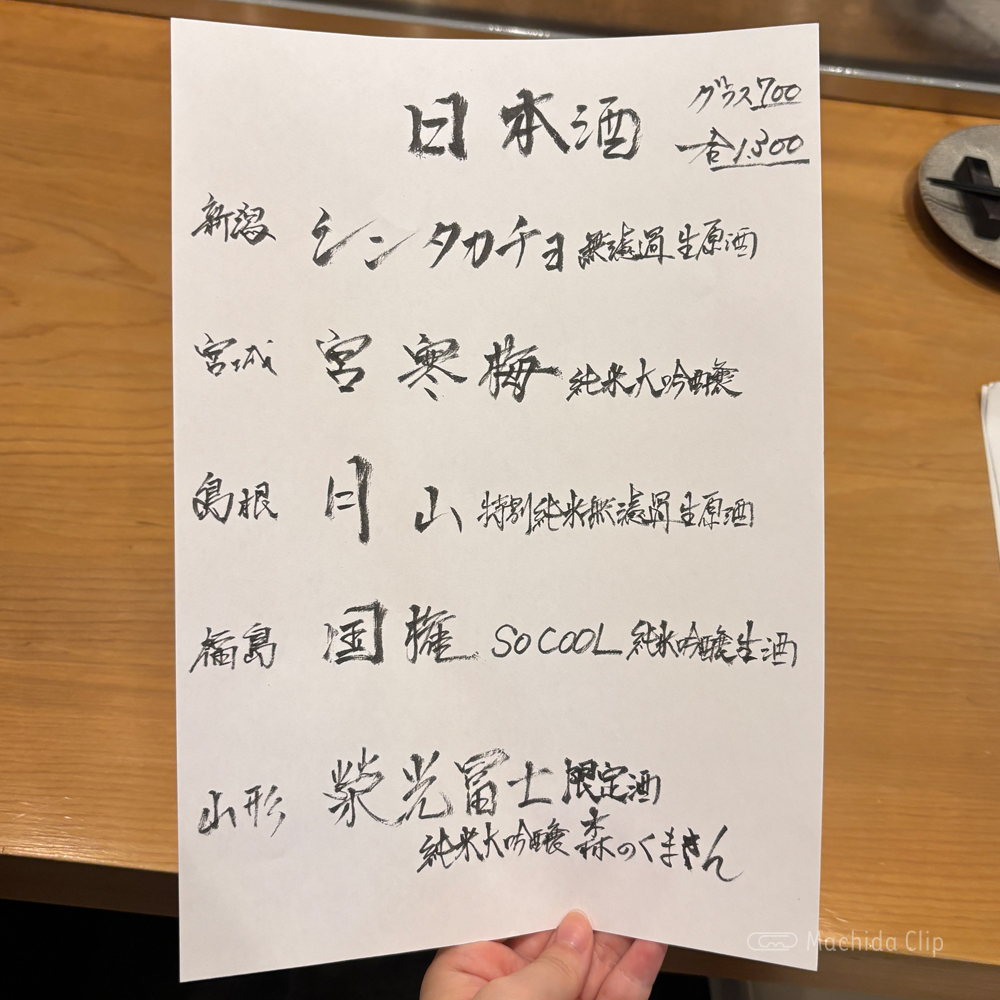 日本酒
グラス700
一合1.300
新潟 シンタカチョ 無濾過生原酒
宮城 宮寒梅 純米大吟醸
島根 月山 特別純米無濾過生原酒
福島 国権 SO COOL 純米吟醸生酒
山形 榮光冨士 限定酒
純米大吟醸 森のくまさん
Machida Clip